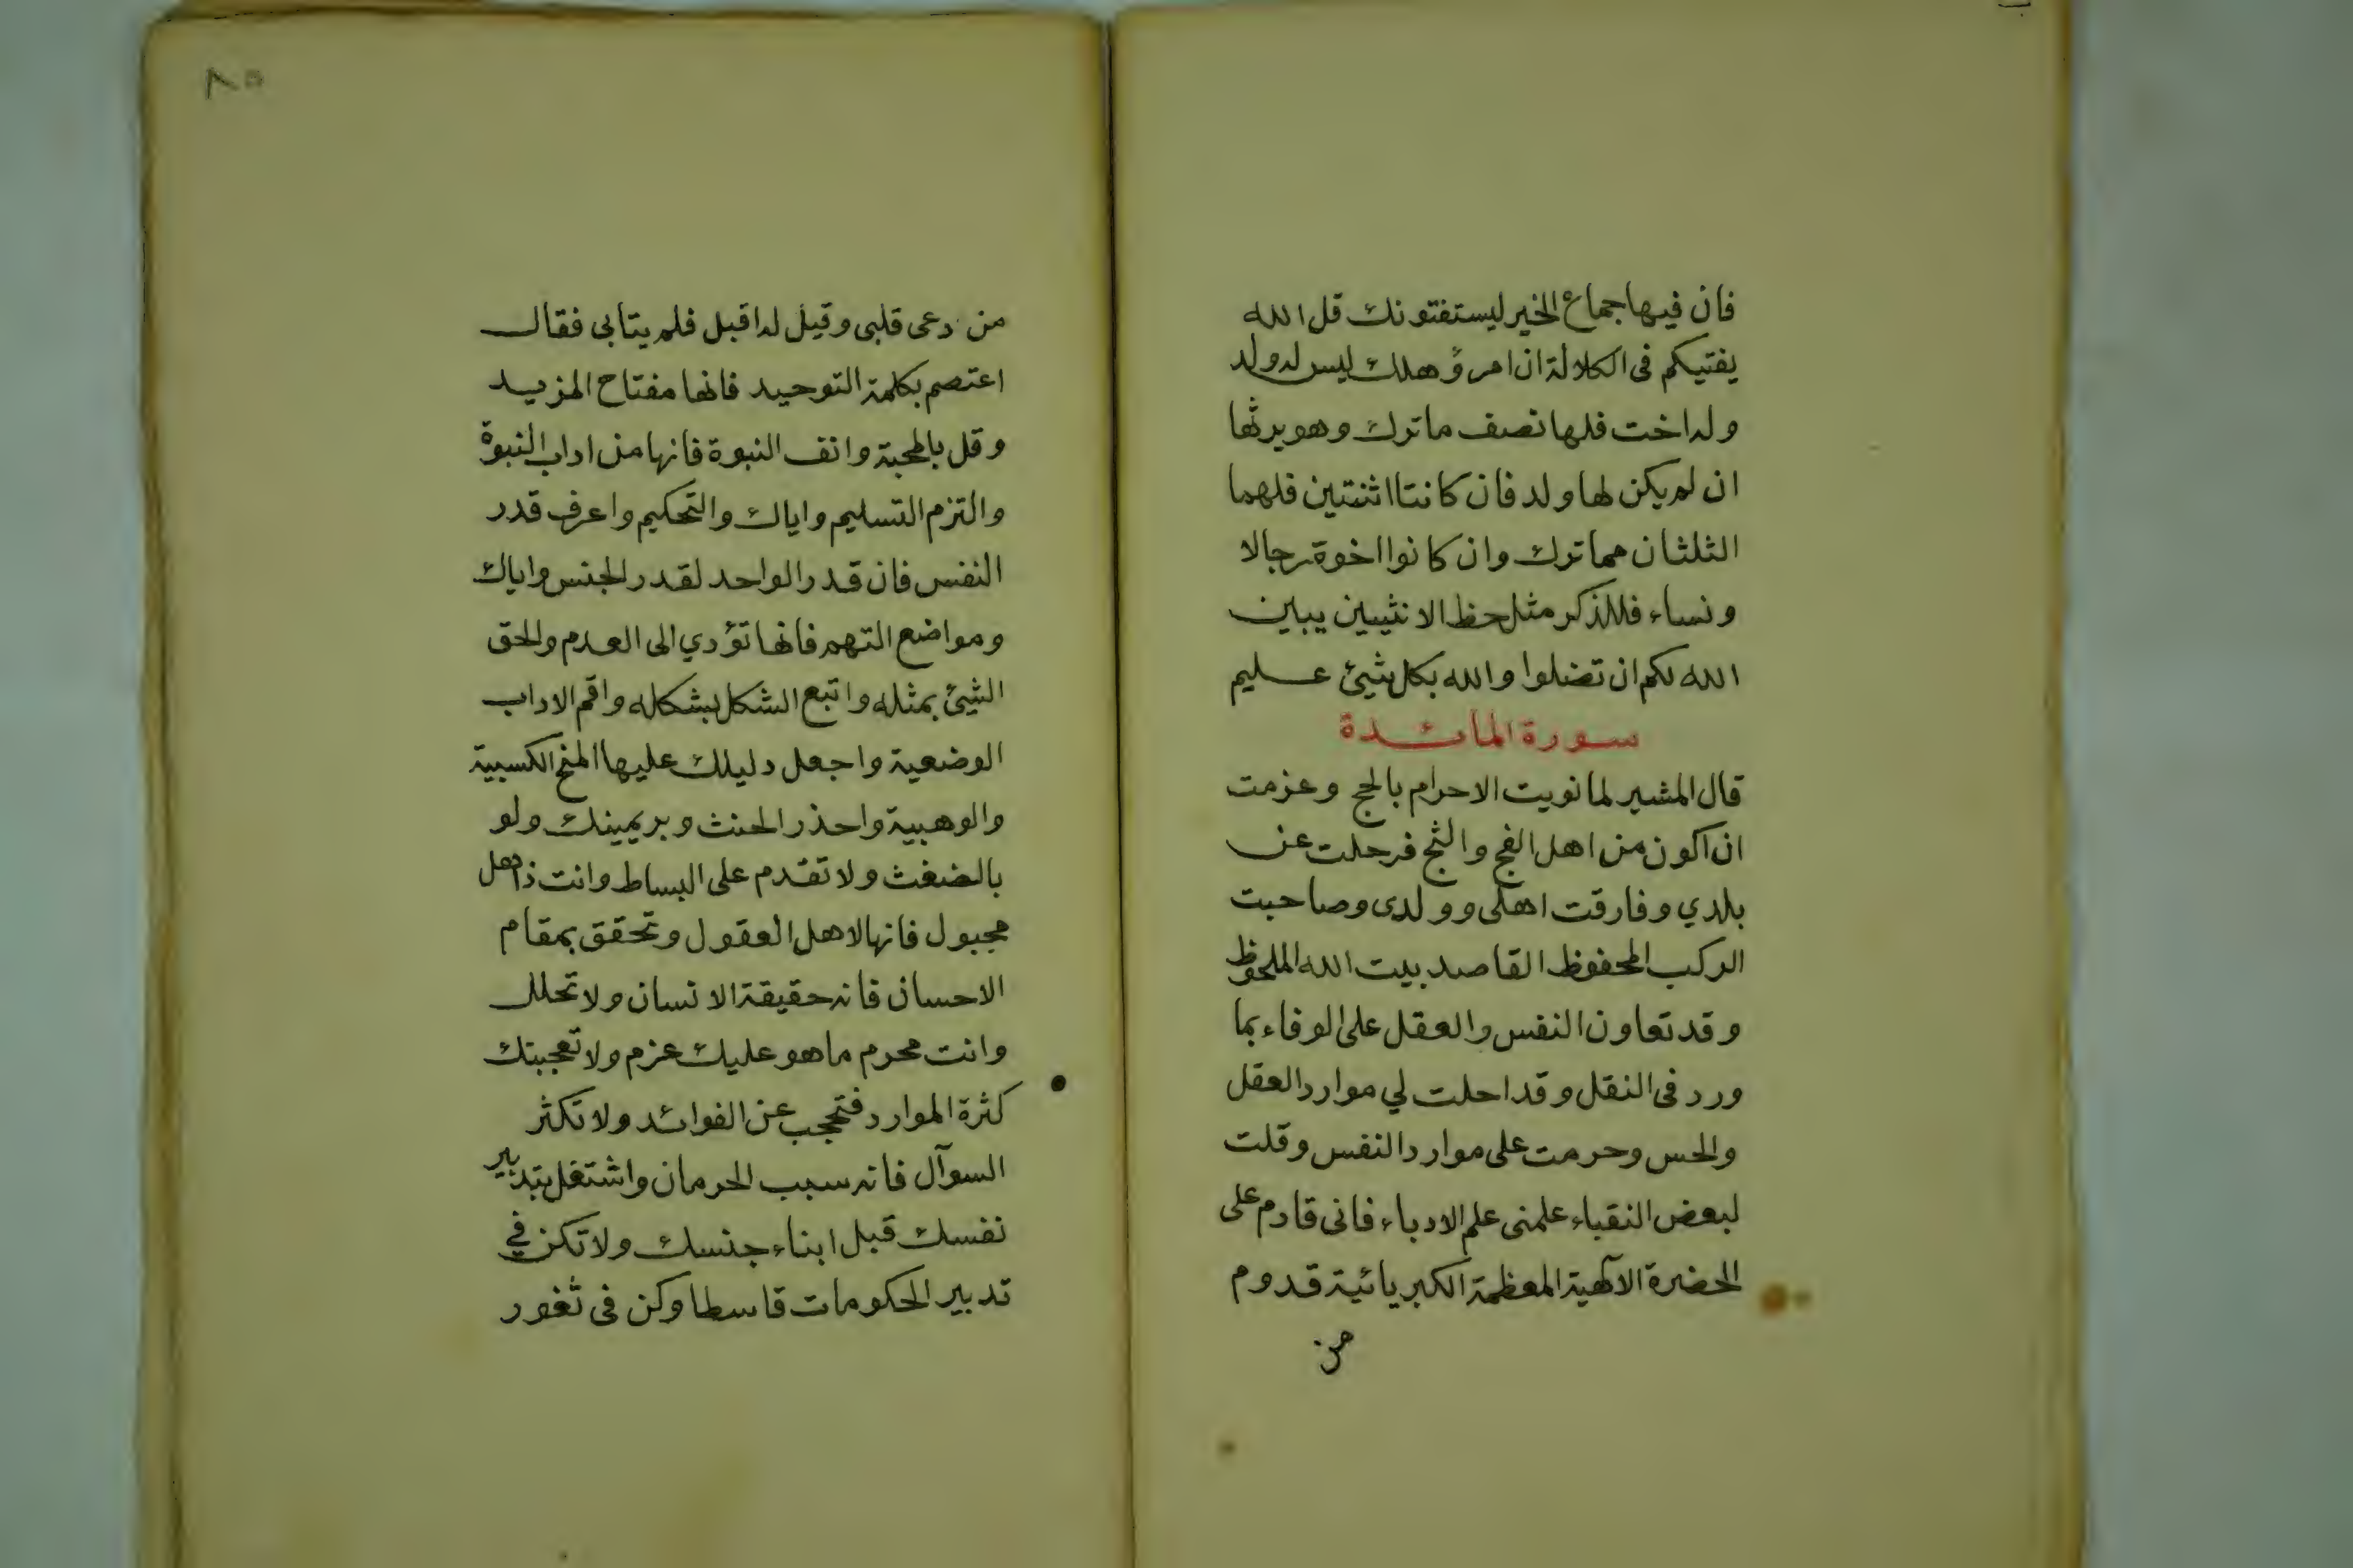 فان فيها جماع الخير ليستفتونك قل الله
يفتيكم فى الكلالة ان امرؤ هلك ليس له ولد
وله اخت فلها نصف ما ترك وهو يرثها
ان لم يكن لها ولد فان كانتا اثنتين فلهما
الثلثان مما ترك وان كانوا اخوة رجالا
ونساء فللذكر مثل حظ الانثيين يبين
الله لكم ان تضلوا والله بكل شيئ عليم
سورة المائدة
قال المشير لما نويت الاحرام بالحج وعزمت
ان اكون من اهل الفج والثج فرحلت عن
بلدي وفارقت اهلى وولدى وصاحبت
الركب المحفوظ القاصد بيت الله الملحوظ
وقد تعاون النفس والعقل على الوفاء بما
ورد فى النقل وقد احلت لي موارد العقل
والحس وحرمت على موارد النفس وقلت
لبعض النقباء علمنى علم الادباء فانى قادم على
الحضرة الآلهية المعظمة الكبريائية قدوم
من
٨٥
من دعى قلبى وقيل له اقبل فلم يتابى فقال
اعتصم بكلمة التوحيد فانها مفتاح المزيد
وقل بالمحبة وانف النبوة فانها من اداب النبوة
والتزم التسليم واياك والتحكيم واعرف قدر
النفس فان قدر الواحد لقدر الجنس واياك
ومواضع التهم فانها تؤدي الى العدم والحق
الشيئ بمثله واتبع الشكل بشكله واقم الاداب
الوضعية واجعل دليلك عليها المنح الكسبية
والوهبية واحذر الحنث وبر يمينك ولو
بالضغث ولا تقدم على البساط وانت ذاهل
مجبول فانها لاهل العقول وتحقق بمقام
الاحسان فانه حقيقة الانسان ولا تحلل
وانت محرم ما هو عليك عزم ولا تعجبنك
كثرة الموارد فتحجب عن الفوائد ولا تكثر
السوآل فانه سبب الحرمان واشتغل بتدبير
نفسك قبل ابناء جنسك ولا تكن في
تدبير الحكومات قاسطا وكن فى ثغور